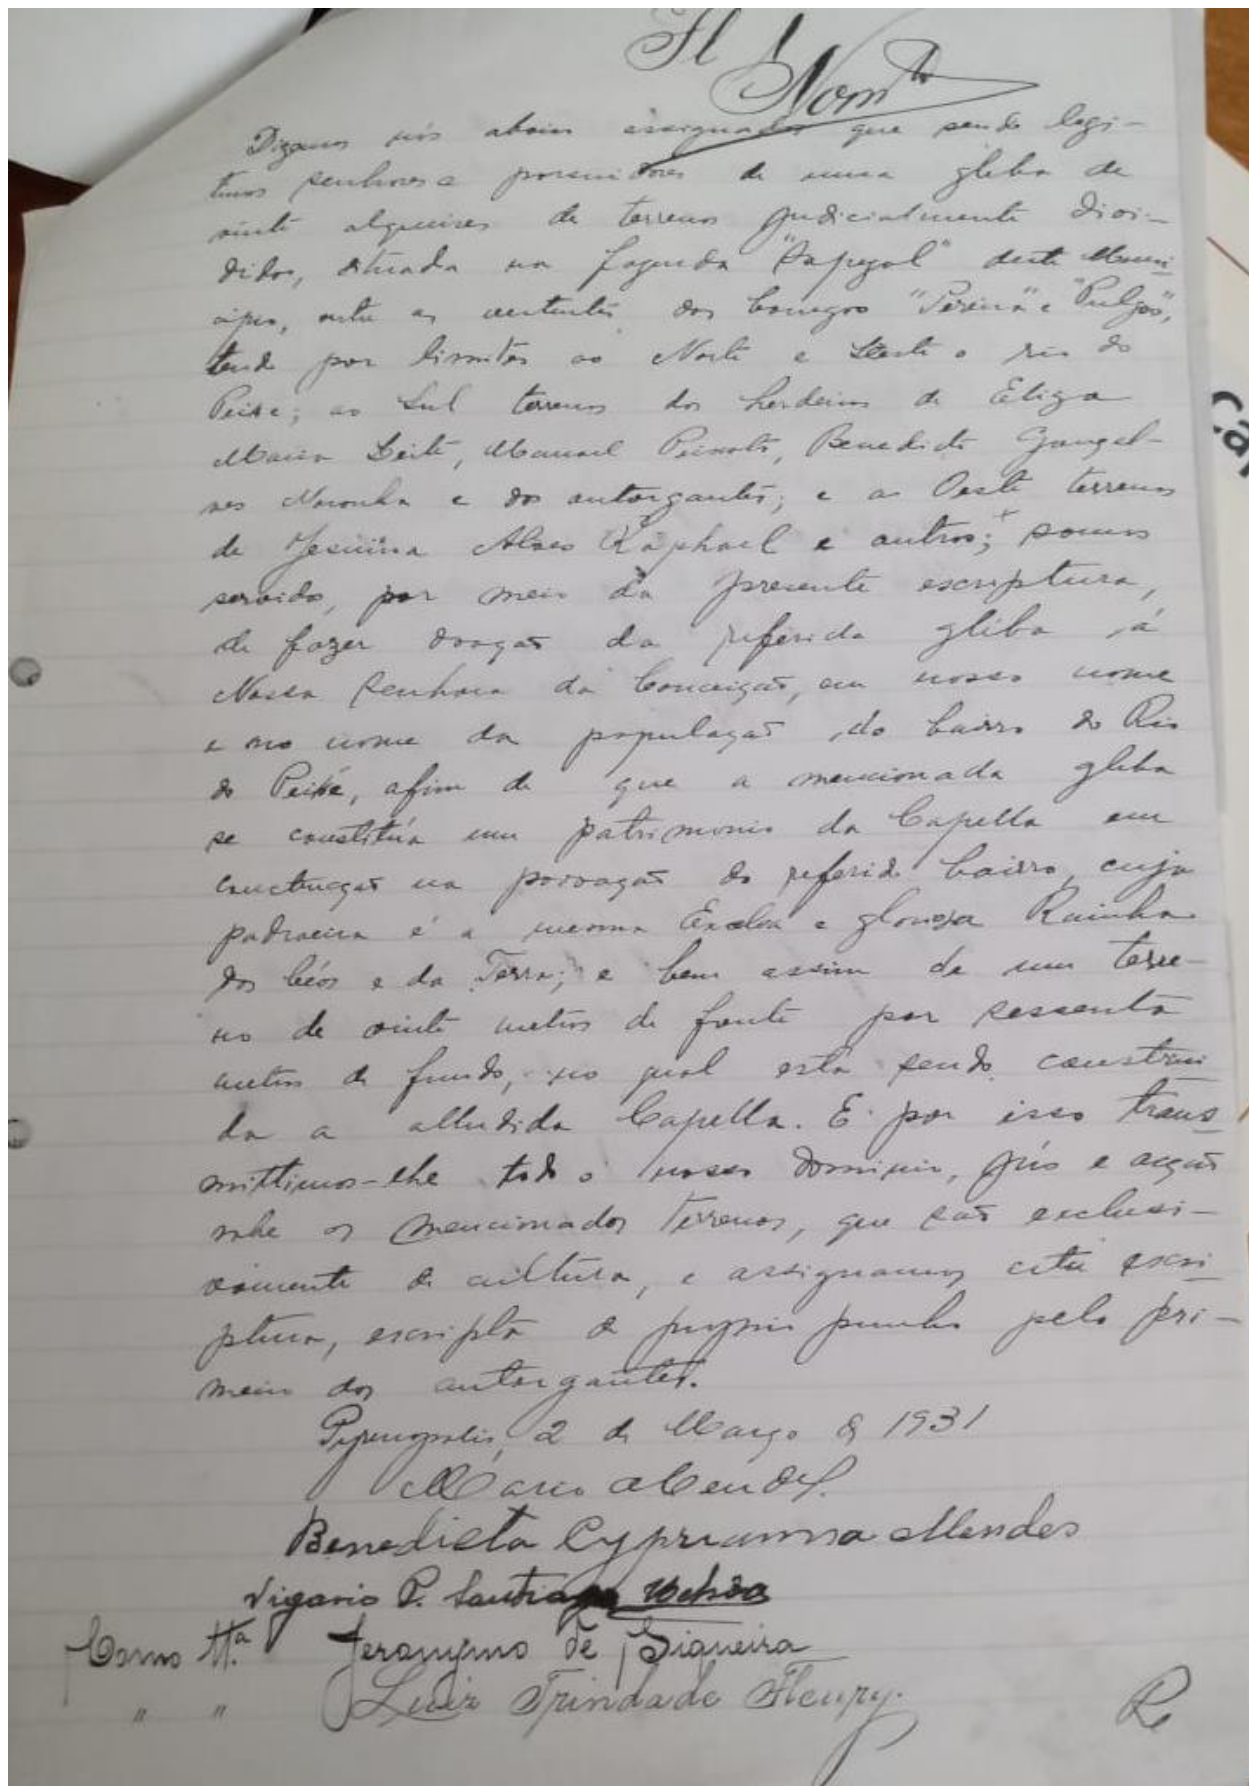 Fl 1
Dizemos nós abaixo assignados que sendo legi-
timos senhores e possuidores de uma gleba de
vinte alqueires de terrenos judicialmente divi-
didos, situada na fazenda "Sapezal" deste Muni-
cipio, entre as vertentes dos Corregos "Pereira" e "Pulgas",
tendo por limites ao Norte e Léste o rio do
Peixe; ao Sul terrenos dos herdeiros de Eliza
Maria Leite, Manoel Peixoto, Benedicto Gonçal-
ves Noronha e dos outorgantes; e a Oeste terrenos
de Jesuina Alves Raphael e outros; somos
servido, por meio da presente escriptura,
de fazer doação da referida gleba á
Nossa Senhora da Conceição, em nosso nome
e no nome da população do bairro do Rio
do Peixe, afim de que a mencionada gleba
se constitúa um patrimonio da Capella em
construcção na povoação do referido bairro, cuja
padroeira é a mesma Excelsa e gloriosa Rainha
dos Céos e da Terra; e bem assim de um terre-
no de vinte metros de frente por sessenta
metros de fundo, no qual está sendo construi
da a alludida Capella. E por isso trans
mittimos-lhe todo o nosso dominio, jús e acção
sobre os mencionados terrenos, que são exclusi-
vamente de cultura, e assignamos esta escri
ptura, escripta de proprio punho pelo pri-
meiro dos outorgantes.
Pyrenopolis, 2 de Março de 1931
Marco Mendes.
Benedicta Cyprianna Mendes
Vigario P. Santiago Uchôa
Como Tª. Jeronymo de Siqueira
" " Luiz Trindade Fleury.